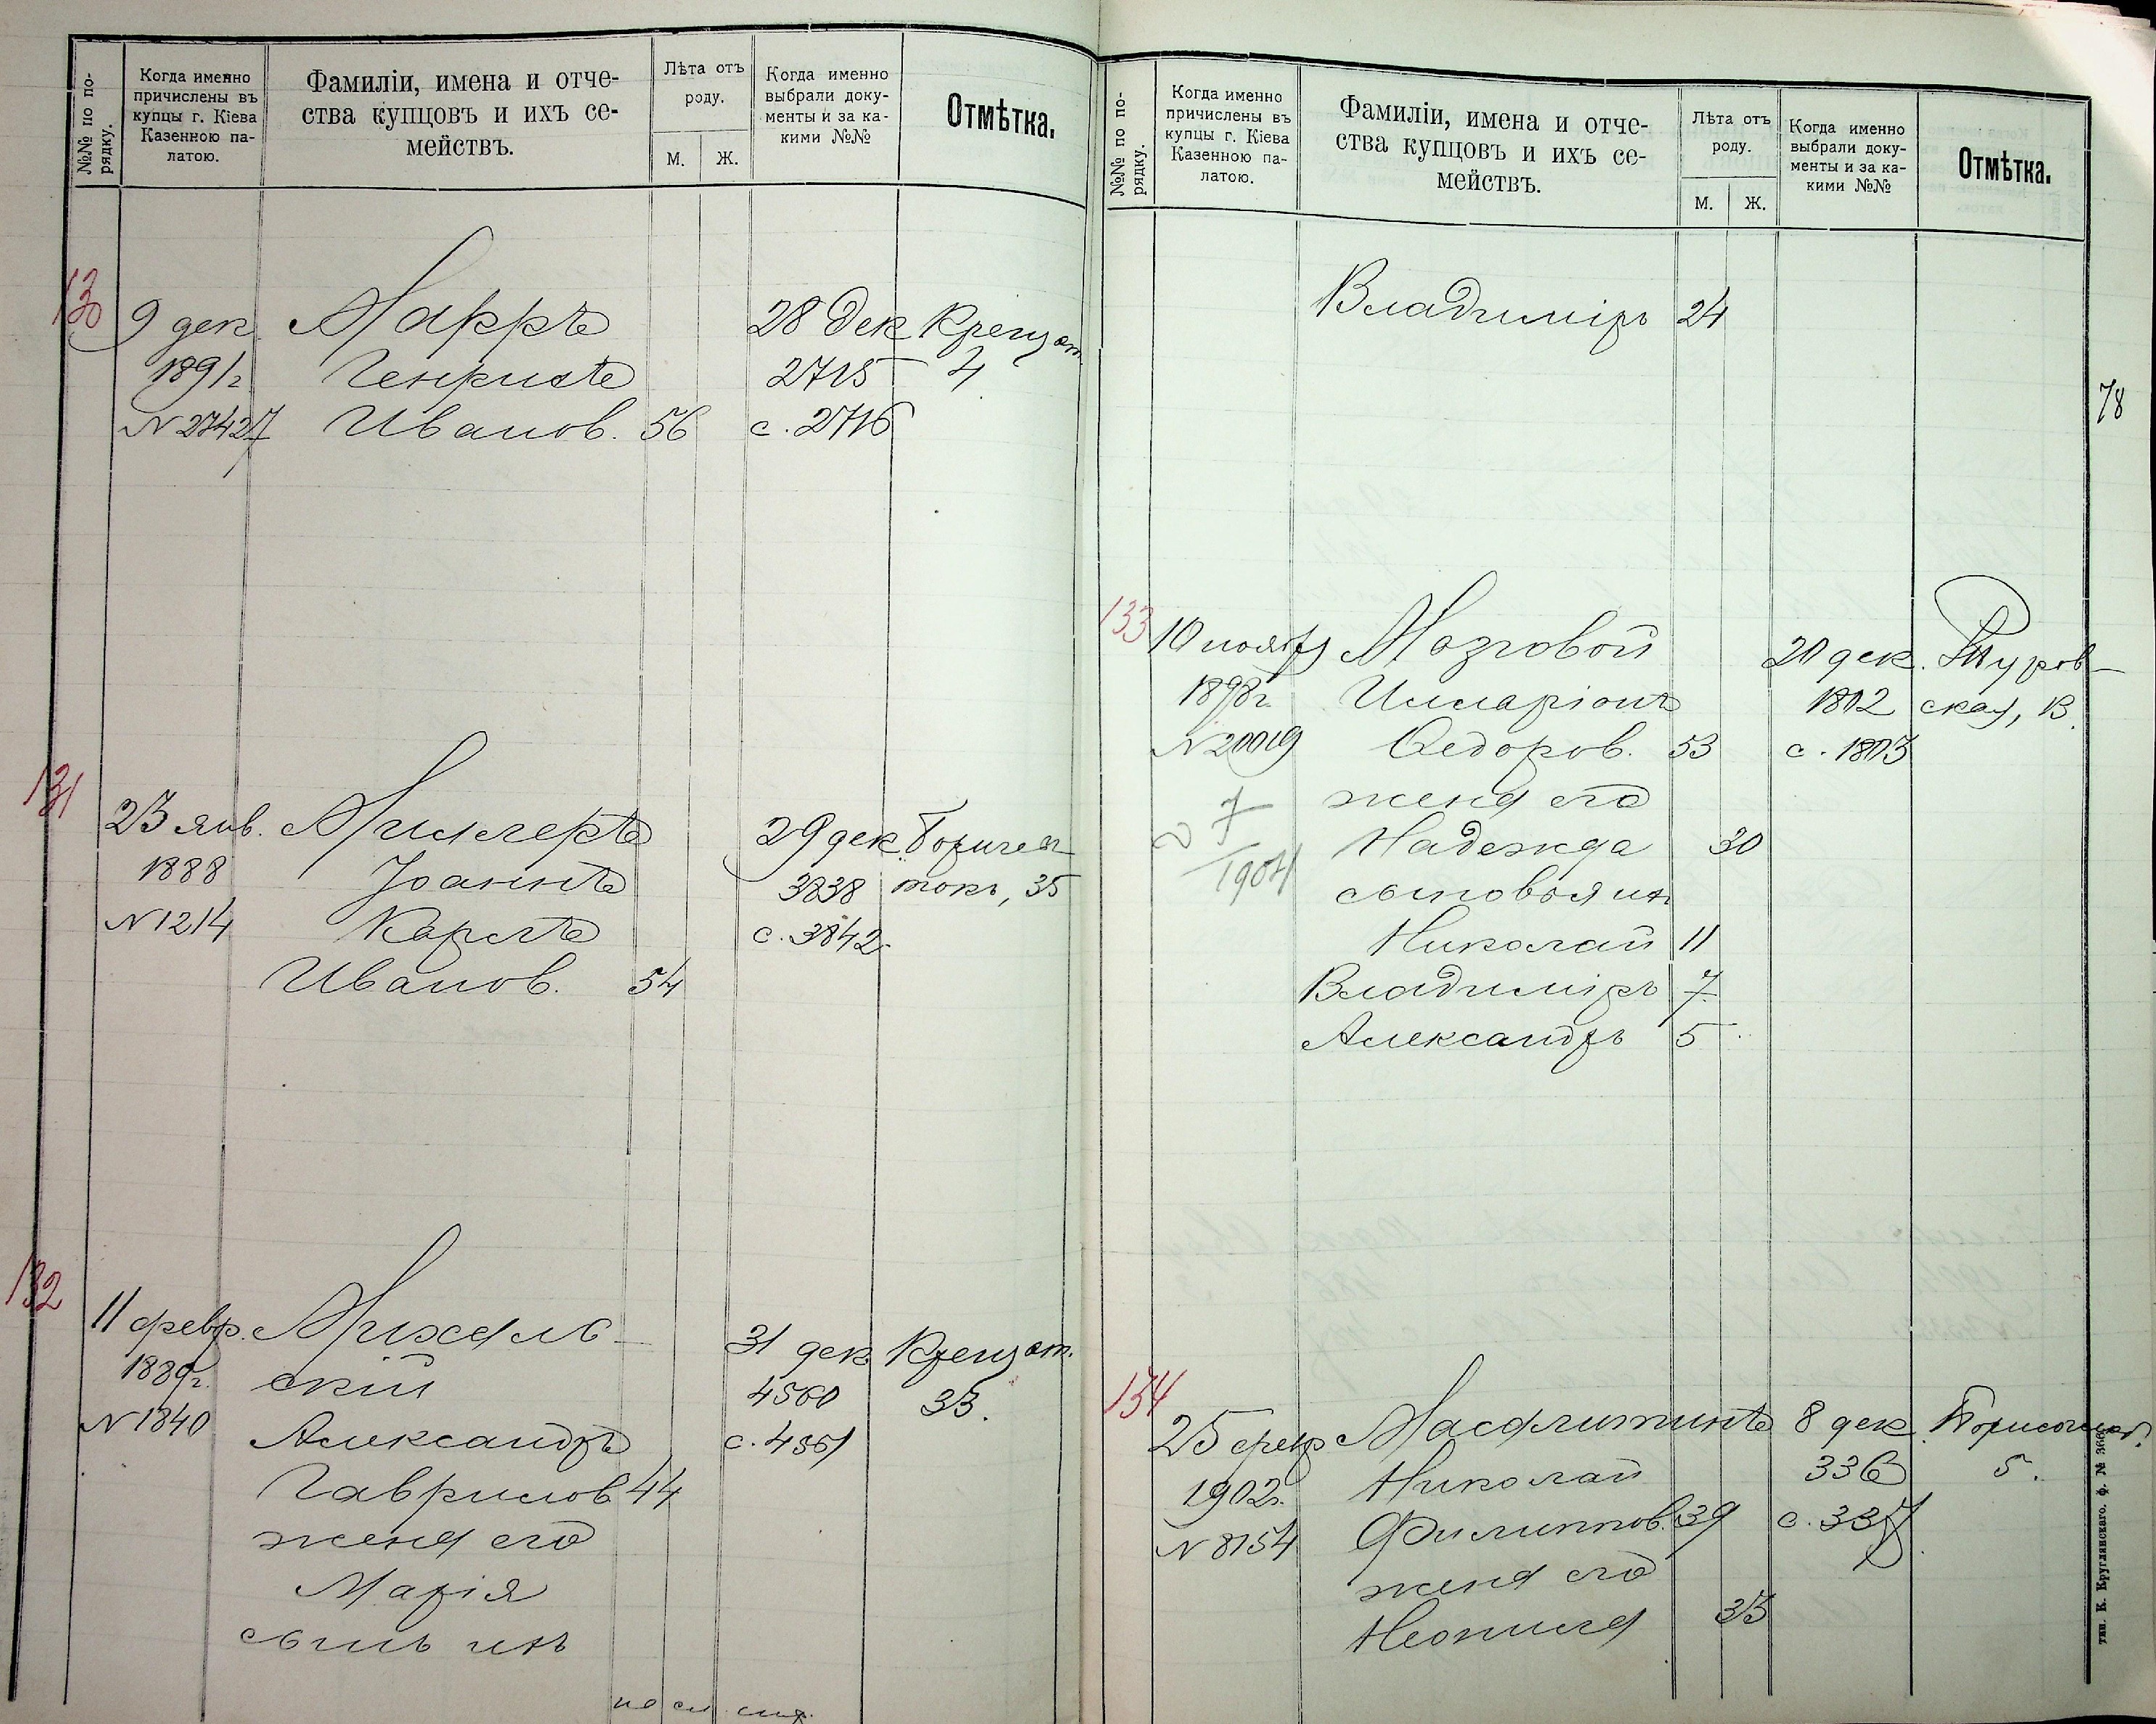 №№ по порядку.
Когда именно
причислены въ
купцы г. Кіева
Казенною па-
латою.
Фамиліи, имена и отче-
ства купцовъ и ихъ се-
мействъ.
Лѣта отъ
роду.
М. Ж.
Когда именно
выбрали доку-
менты и за ка-
кими №№
Отмѣтка.
130
9 дек. Марръ 28 дек Крещат.
1891 г Генрихъ 2715 4
N 27427 Иванов. 56 с. 2716
131
23 янв. Миллеръ 29 дек.
1888 Іоаннъ 3838 токъ, 35
N 1214 Карлъ с. 3842
Иванов. 54
132
11 февр. Михель- 31 дек Крещат.
1889 г. скій 4560 33.
N 1840 Александръ с. 4561
Гаврилов 44
жена его
Марія
сынъ ихъ
на сл. стр.
№№ по порядку.
Когда именно
причислены въ
купцы г. Кіева
Казенною па-
латою.
Фамиліи, имена и отче-
ства купцовъ и ихъ се-
мействъ.
Лѣта отъ
роду.
М. Ж.
Когда именно
выбрали доку-
менты и за ка-
кими №№
Отмѣтка.
Владиміръ 24
78
133
10 ноября Мозговой 20 дек. Туров-
1898 г. Илларіонъ 1802 ская, 13.
N 20019 Ѳедоров. 53 с. 1803
жена его
7
1904
Надежда 30
сыновья ихъ
Николай 11
Владиміръ 7
Александръ 5
134
25 февр 8 дек.
1902 г. Николай 336 5.
N 8154 Филиппов. 39 с. 337
жена его
Неонила 33
тип. К. Круглянскаго.